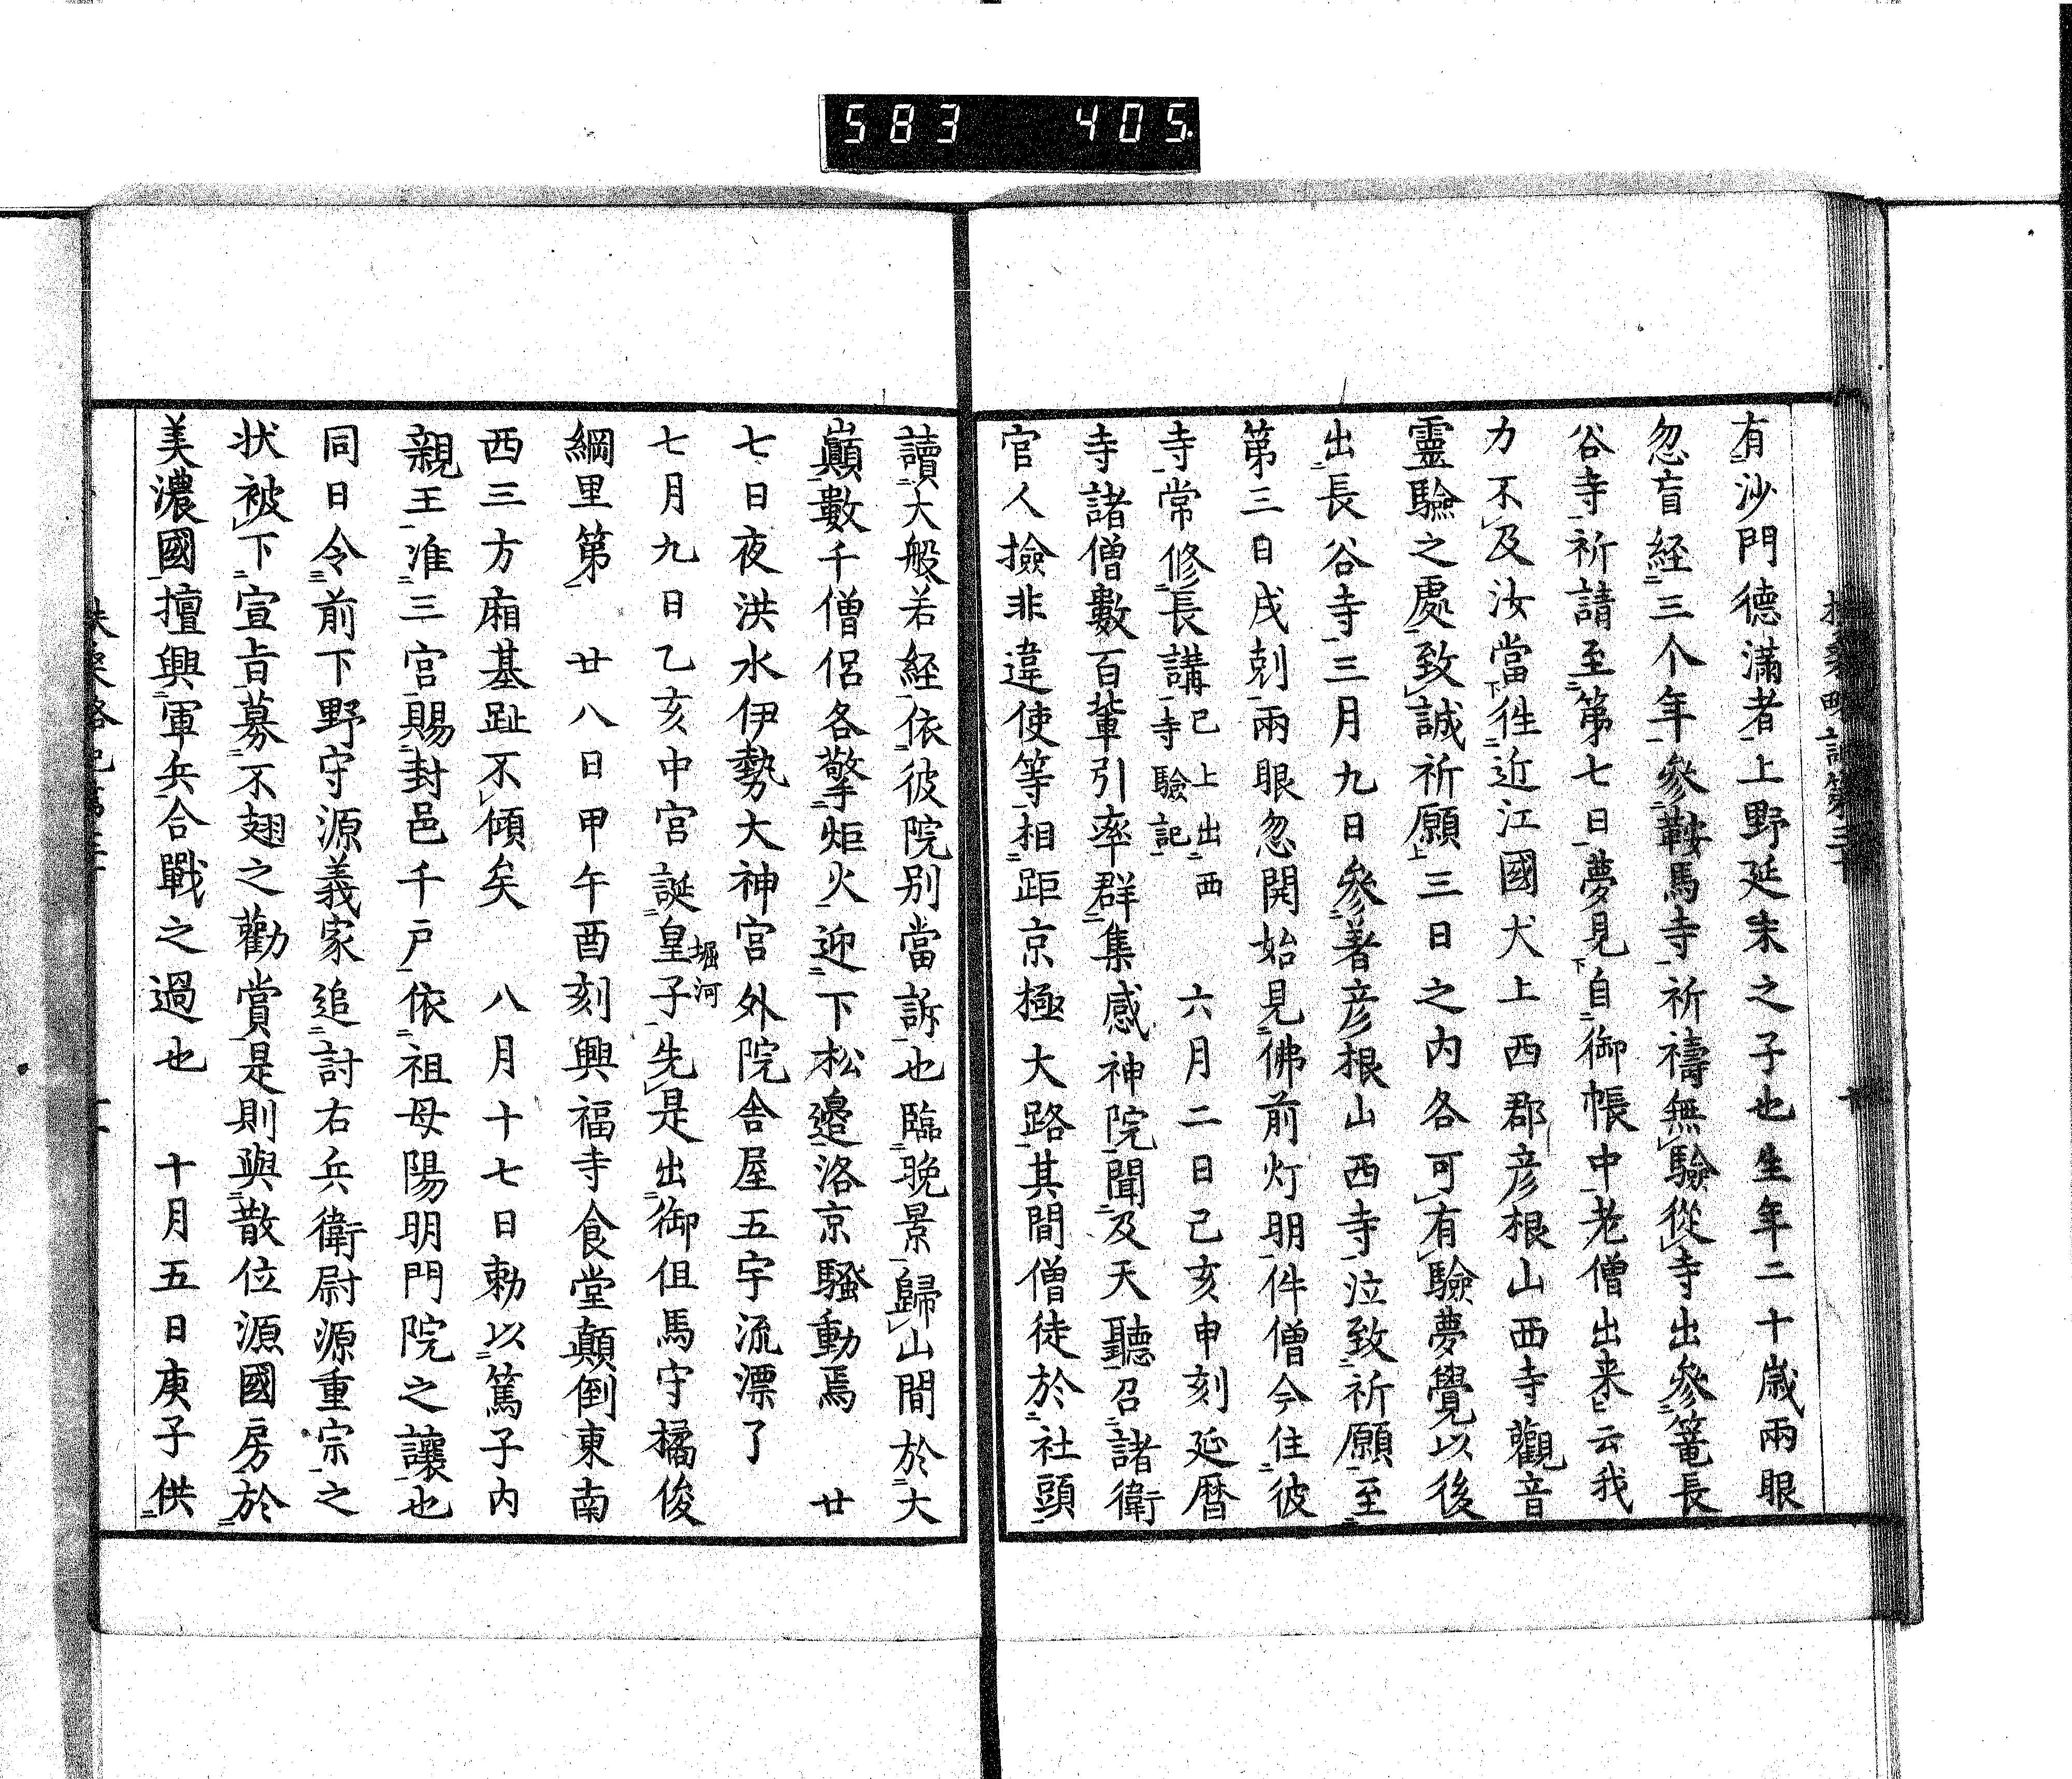 583 405.
有沙門德滿者上野延末之子也生年二十歳兩眼
忽盲経三个年參鞍馬寺祈禱無驗從寺出參篭長
谷寺祈請至第七日夢見自御帳中老僧出来云我
力不及汝當徃近江國犬上西郡彦根山西寺觀音
靈驗之處致誠祈願三日之内各可有驗夢覺以後
出長谷寺三月九日參著彦根山西寺泣致祈願至
第三日戌剋兩眼忽開始見佛前灯明件僧今住彼
寺常修長講已上出西寺驗記 六月二日己亥申刻延暦
寺諸僧數百輩引率群集感神院聞及天聽召諸衛
官人撿非違使等相距京極大路其間僧徒於社頭
讀大般若経依彼院別當訴也臨晩景歸山間於大
巓數千僧侶各擎炬火迎下松邉洛京騷動焉 廿
七日夜洪水伊勢大神宮外院舎屋五宇流漂了
七月九日乙亥中宮誕皇子堀河先是出御伹馬守橘俊
綱里第 廿八日甲午酉刻興福寺食堂顛倒東南
西三方廂基趾不傾矣 八月十七日勅以篤子内
親王准三宮賜封邑千戸依祖母陽明門院之讓也
同日令前下野守源義家追討右兵衛尉源重宗之
状被下宣旨募不翅之勸賞是則與散位源國房於
美濃國擅興軍兵合戰之過也 十月五日庚子供